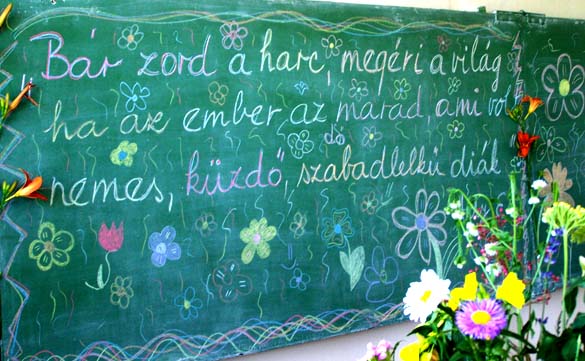 Bár zord a harc, megéri a világ
ha az ember az marad, ami volt
nemes, küzdő, szabadlelkű diák